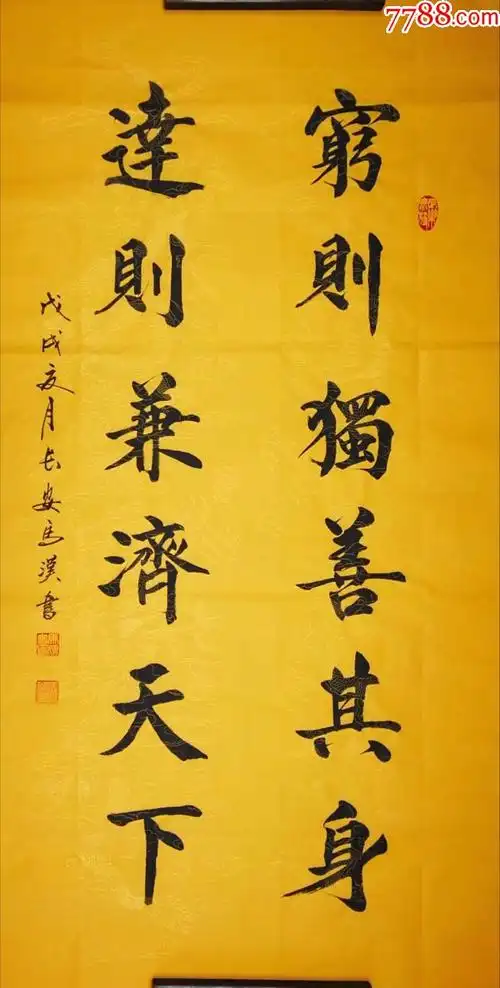 7788.com
窮則獨善其身
達則兼濟天下
戊戌夏月长安馬漢書